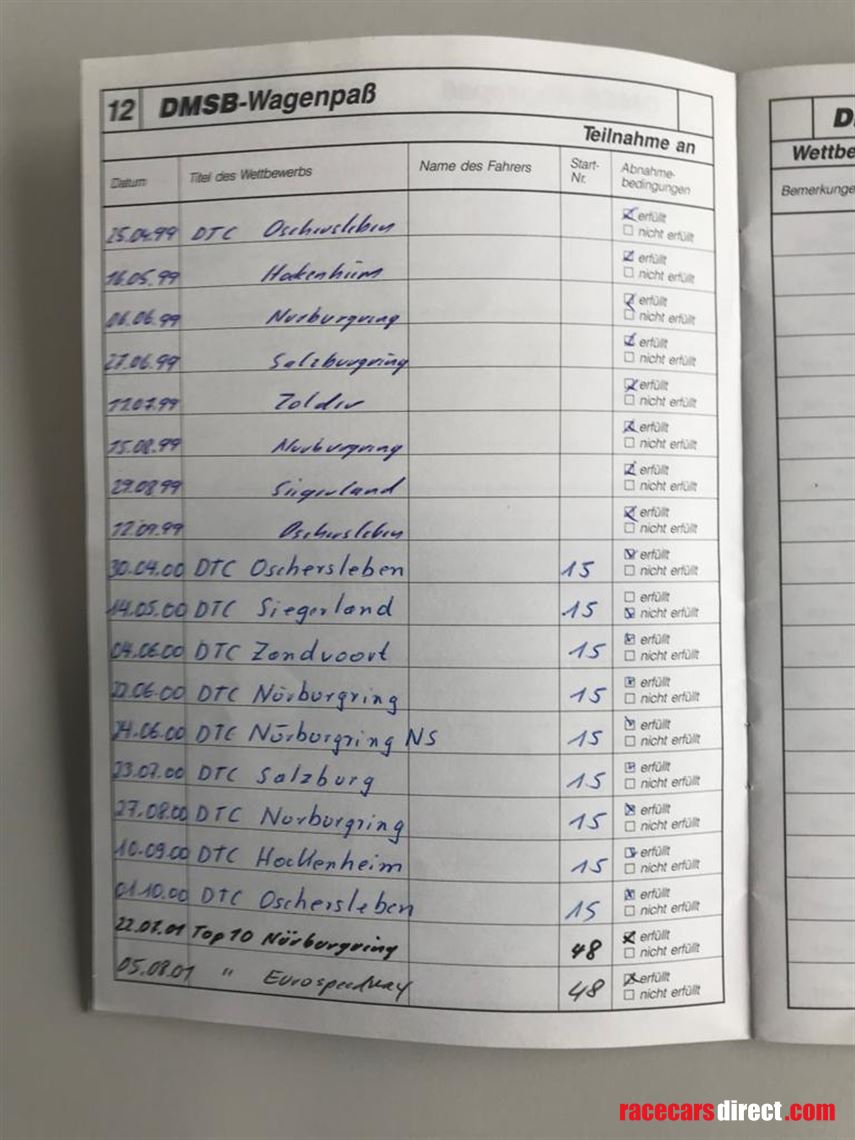 12 DMSB-Wagenpaß
Teilnahme an
Datum Titel des Wettbewerbs Name des Fahrers Start-Nr. Abnahme-bedingungen
25.04.99 DTC Oschersleben erfüllt
nicht erfüllt
16.05.99 Hokenheim erfüllt
nicht erfüllt
06.06.99 Nurburgring erfüllt
nicht erfüllt
27.06.99 Salzburgring erfüllt
nicht erfüllt
11.07.99 Zolder erfüllt
nicht erfüllt
15.08.99 Nurburgring erfüllt
nicht erfüllt
29.08.99 Siegerland erfüllt
nicht erfüllt
12.09.99 Oschersleben erfüllt
nicht erfüllt
30.04.00 DTC Oschersleben 15 erfüllt
nicht erfüllt
14.05.00 DTC Siegerland 15 erfüllt
nicht erfüllt
04.06.00 DTC Zandvoort 15 erfüllt
nicht erfüllt
22.06.00 DTC Nürburgring 15 erfüllt
nicht erfüllt
24.06.00 DTC Nürburgring NS 15 erfüllt
nicht erfüllt
23.07.00 DTC Salzburg 15 erfüllt
nicht erfüllt
27.08.00 DTC Nürburgring 15 erfüllt
nicht erfüllt
10.09.00 DTC Hockenheim 15 erfüllt
nicht erfüllt
01.10.00 DTC Oschersleben 15 erfüllt
nicht erfüllt
22.07.01 Top 10 Nürburgring 48 erfüllt
nicht erfüllt
05.08.01 " Eurospeedway 48 erfüllt
nicht erfüllt
D
Wettbe
Bemerkunge
racecarsdirect.com